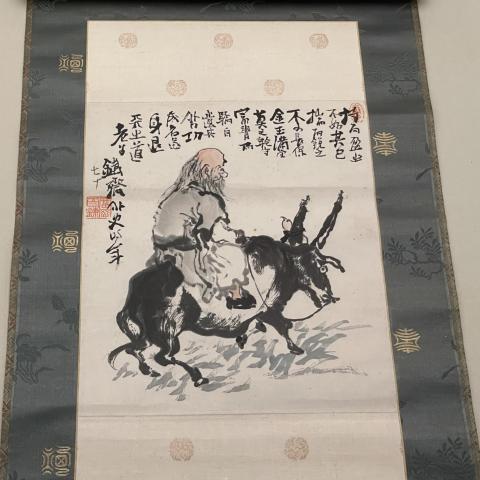 持而盈之
不如其已
揣而鋭之
不可長保
金玉滿堂
莫之能守
富貴而
驕自
遺其
咎功
成名遂
身退
天之道
鐵齋外史時年
七十